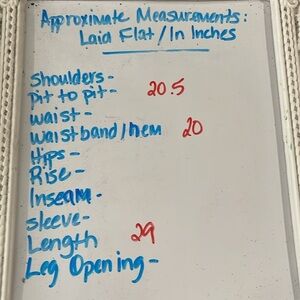 Approximate Measurements:
Laid Flat/In Inches
Shoulders-
pit to pit- 20.5
waist-
waistband/hem 20
Hips-
Rise-
Inseam-
sleeve-
Length 29
Leg Opening-